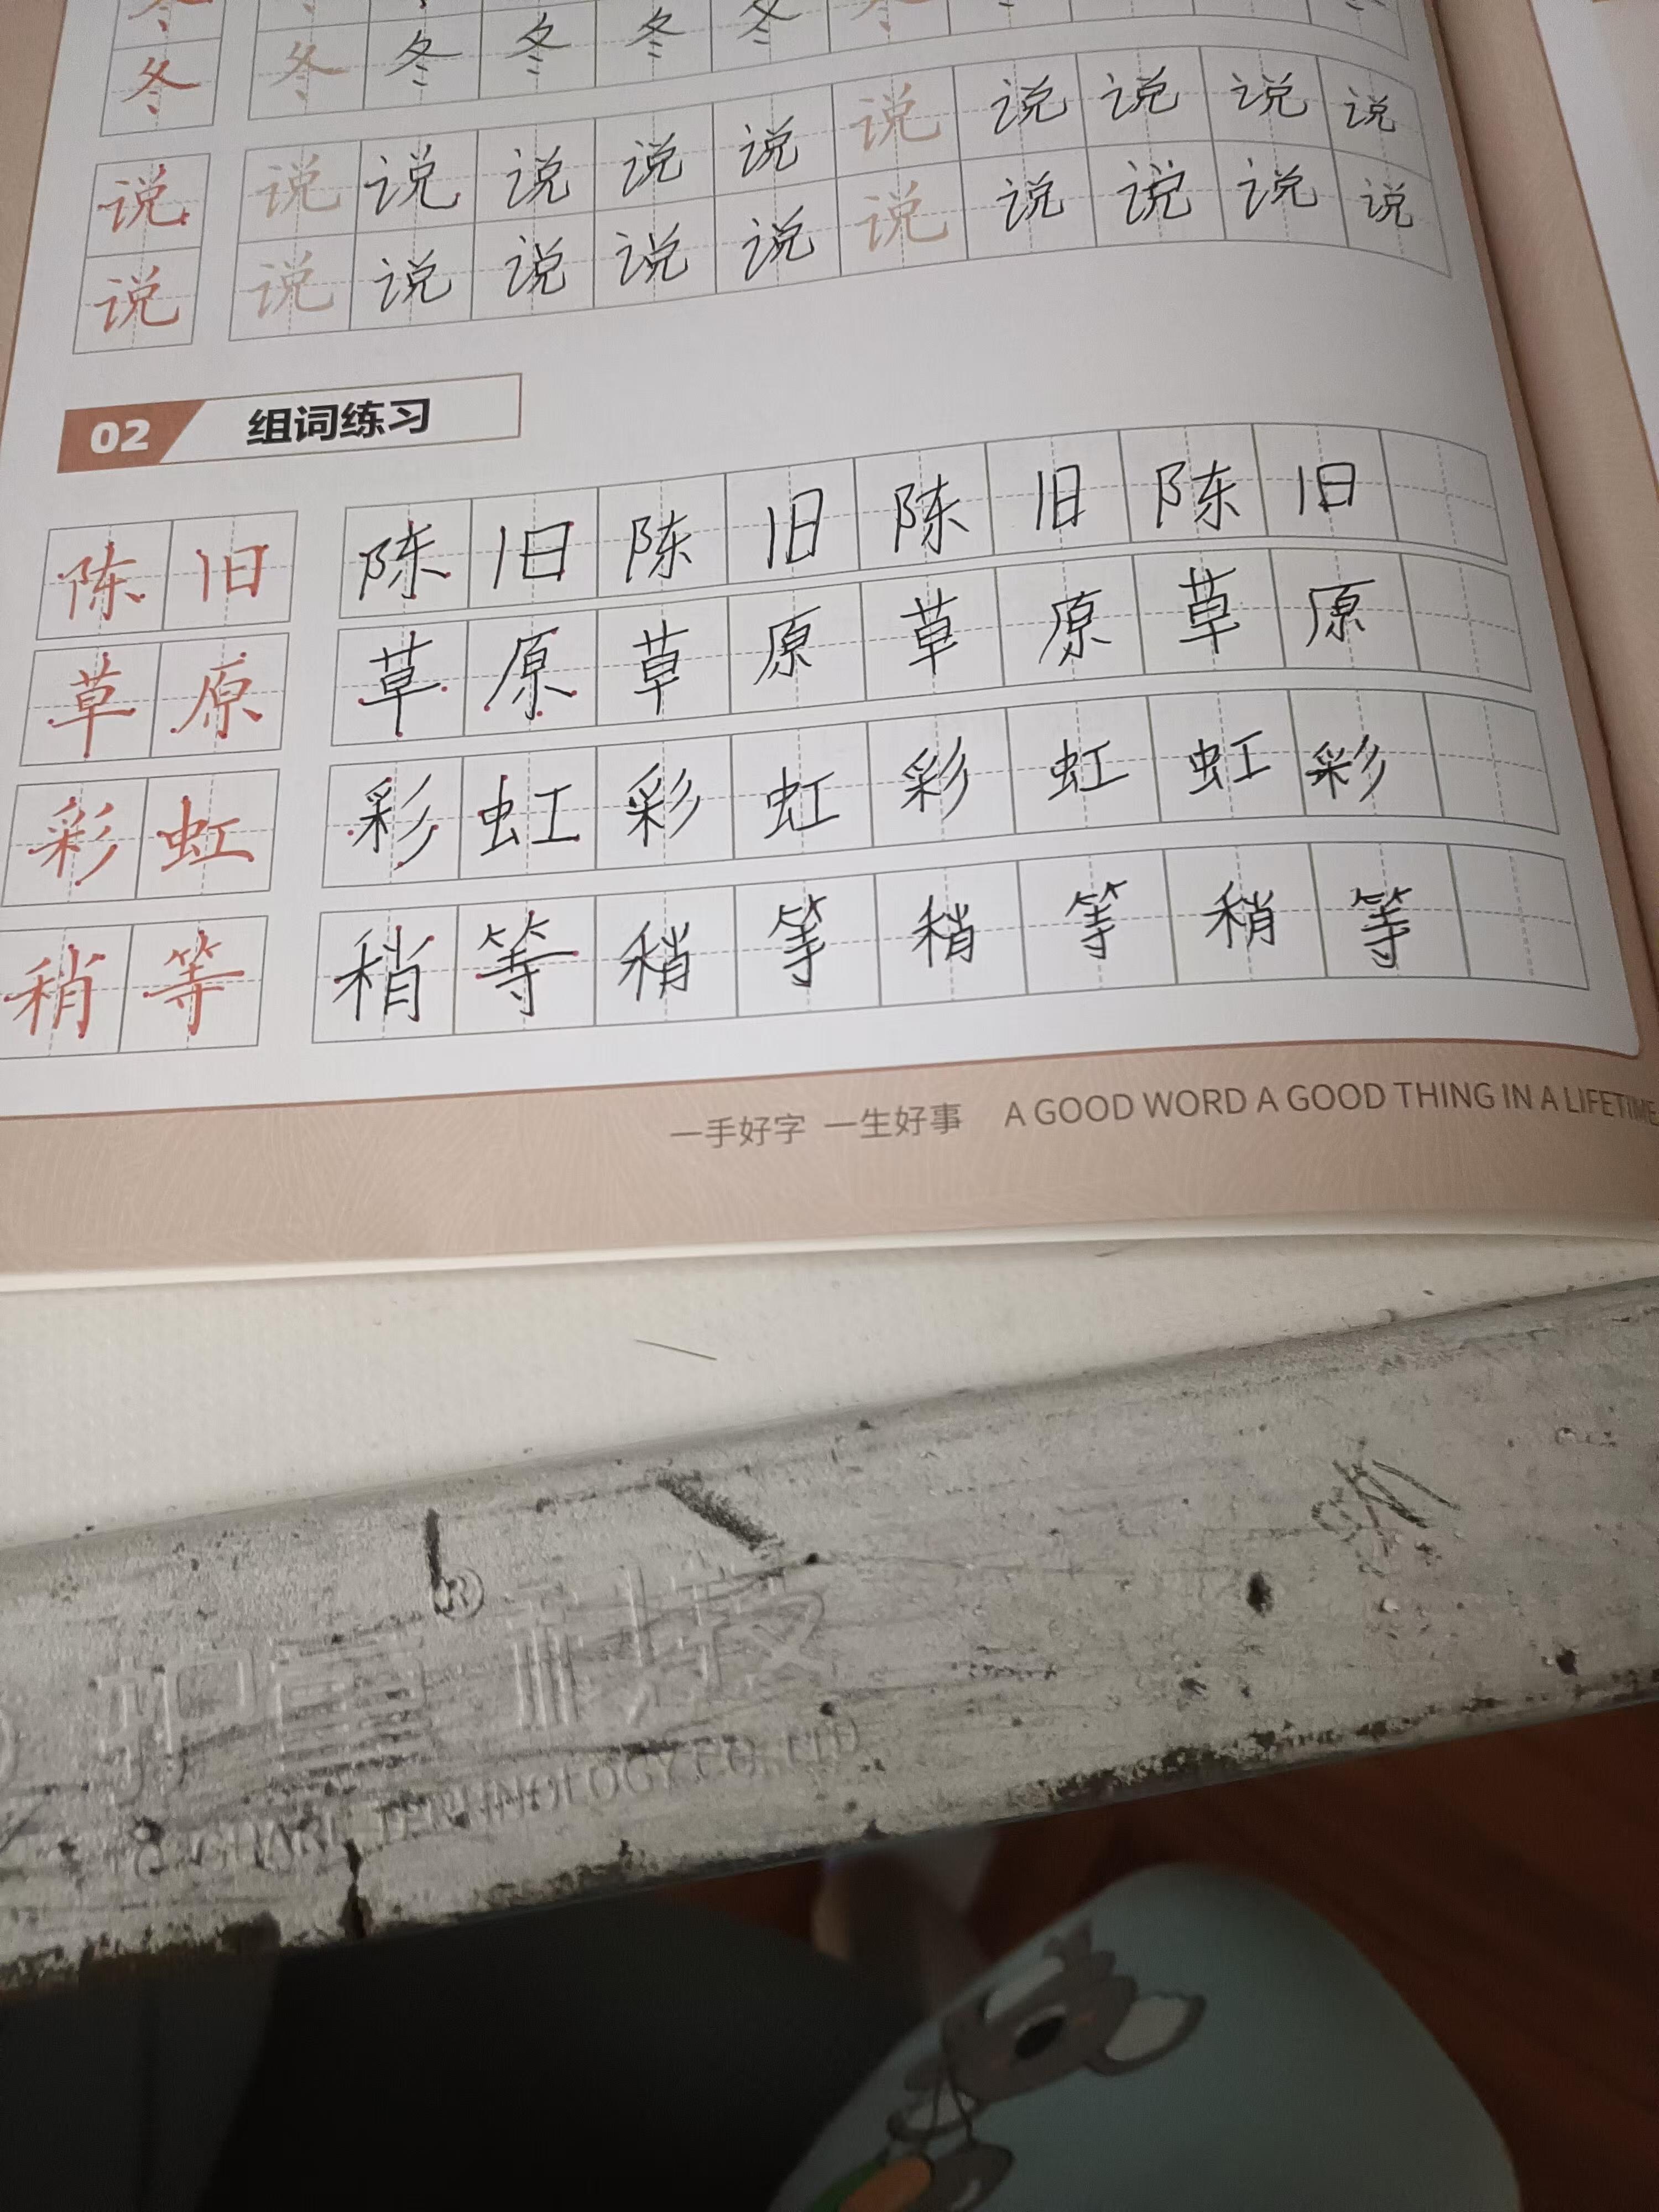 冬 冬 冬 冬 冬 冬
说 说 说 说 说 说 说 说 说 说 说
说 说 说 说 说 说 说 说 说 说 说
02 组词练习
陈旧 陈旧陈旧陈旧陈旧
草原 草原草原草原草原
彩虹 彩虹彩虹彩虹虹彩
稍等 稍等稍等稍等稍等
一手好字 一生好事 A GOOD WORD A GOOD THING IN A LIFETIME
护童®科技
TECHNOLOGY CO., LTD